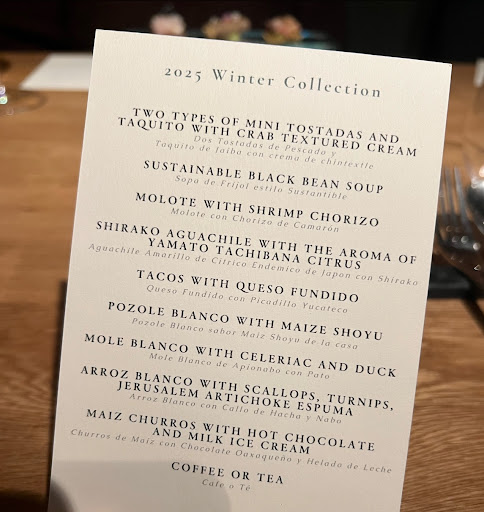 2025 Winter Collection
TWO TYPES OF MINI TOSTADAS AND
TAQUITO WITH CRAB TEXTURED CREAM
Dos Tostadas de Pescado y
Taquito de Jaiba con crema de chintextle
SUSTAINABLE BLACK BEAN SOUP
Sopa de Frijol estilo Sustantible
MOLOTE WITH SHRIMP CHORIZO
Molote con Chorizo de Camarón
SHIRAKO AGUACHILE WITH THE AROMA OF
YAMATO TACHIBANA CITRUS
Aguachile Amarillo de Citrico Endemico de Japon con Shirako
TACOS WITH QUESO FUNDIDO
Queso Fundido con Picadillo Yucateco
POZOLE BLANCO WITH MAIZE SHOYU
Pozole Blanco sabor Maiz Shoyu de la casa
MOLE BLANCO WITH CELERIAC AND DUCK
Mole Blanco de Apionabo con Pato
ARROZ BLANCO WITH SCALLOPS, TURNIPS,
JERUSALEM ARTICHOKE ESPUMA
Arroz Blanco con Callo de Hacha y Nabo
MAIZ CHURROS WITH HOT CHOCOLATE
AND MILK ICE CREAM
Churros de Maiz con Chocolate Oaxaqueño y Helado de Leche
COFFEE OR TEA
Cafe o Té